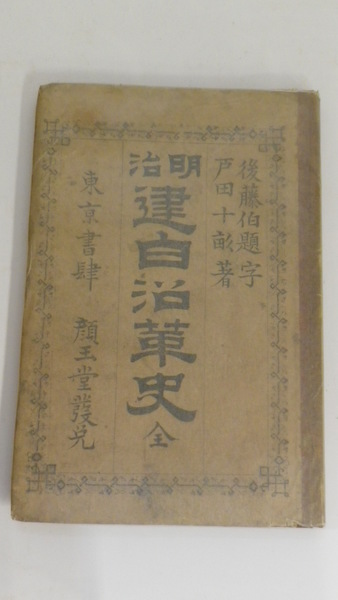 後藤伯題字
戸田十畝著
明治
建白沿革史 全
東京書肆 顔玉堂發兌